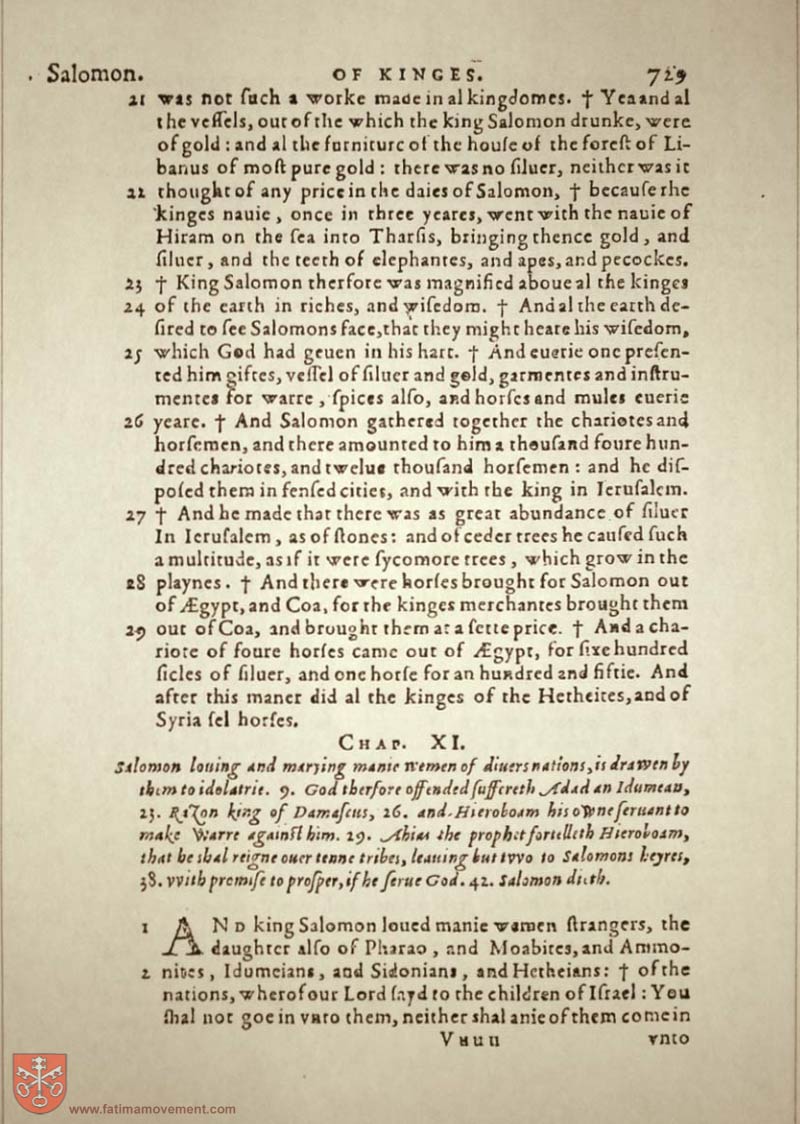 Salomon. OF KINGES. 729
21 was not ſuch a worke made in al kingdomes. † Yea and al
the veſſels, out of the which the king Salomon drunke, were
of gold: and al the furniture of the houſe of the foreſt of Li-
banus of moſt pure gold: there was no ſiluer, neither was it
22 thought of any price in the daies of Salomon, † becauſe the
kinges nauie, once in three yeares, went with the nauie of
Hiram on the ſea into Tharſis, bringing thence gold, and
ſiluer, and the teeth of elephantes, and apes, and pecockes.
23 † King Salomon therfore was magnified aboue al the kinges
24 of the earth in riches, and wiſedom. † And al the earth de-
ſired to ſee Salomons face, that they might heare his wiſedom,
25 which God had geuen in his hart. † And euerie one preſen-
ted him giftes, veſſel of ſiluer and gold, garmentes and inſtru-
mentes for warre, ſpices alſo, and horſes and mules euerie
26 yeare. † And Salomon gathered together the chariotes and
horſemen, and there amounted to him a thouſand foure hun-
dred chariotes, and twelue thouſand horſemen: and he diſ-
poſed them in fenſed cities, and with the king in Ieruſalem.
27 † And he made that there was as great abundance of ſiluer
In Ieruſalem, as of ſtones: and of ceder trees he cauſed ſuch
a multitude, as if it were ſycomore trees, which grow in the
28 playnes. † And there were horſes brought for Salomon out
of Ægypt, and Coa, for the kinges merchantes brought them
29 out of Coa, and brought them at a ſette price. † And a cha-
riote of foure horſes came out of Ægypt, for ſixe hundred
ſicles of ſiluer, and one horſe for an hundred and fiftie. And
after this maner did al the kinges of the Hetheites, and of
Syria ſel horſes.
CHAP. XI.
Salomon louing and marying manie wemen of diuers nations, is drawen by
them to idolatrie. 9. God therfore offended ſuffereth Adad an Idumean,
23. Razon king of Damaſcus, 26. and Hieroboam his owne ſeruant to
make warre againſt him. 29. Ahias the prophet fortelleth Hieroboam,
that he shal reigne ouer tenne tribes, leauing but tvvo to Salomons heyres,
38. vvith promiſe to proſper, if he ſerue God. 42. Salomon dieth.
1 AND king Salomon loued manie wemen ſtrangers, the
daughter alſo of Pharao, and Moabites, and Ammo-
2 nites, Idumeians, and Sidonians, and Hetheians: † of the
nations, wherof our Lord ſayd to the children of Iſrael: You
ſhal not goe in vnto them, neither shal anie of them come in
Vuuu vnto
www.fatimamovement.com